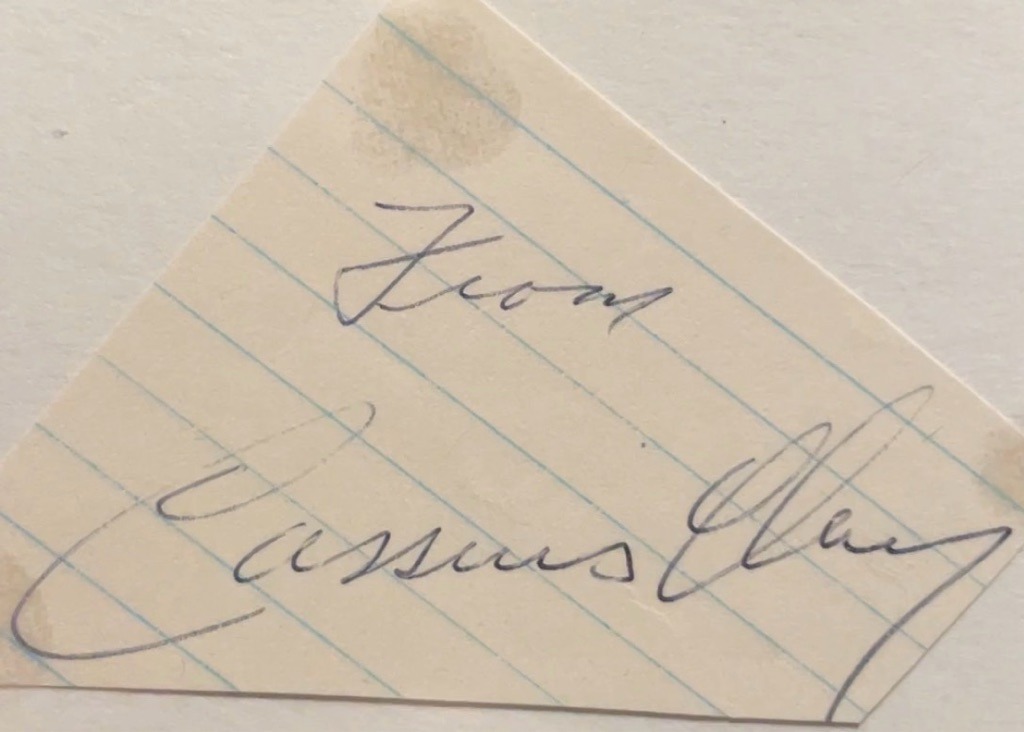 From
Cassius Clay